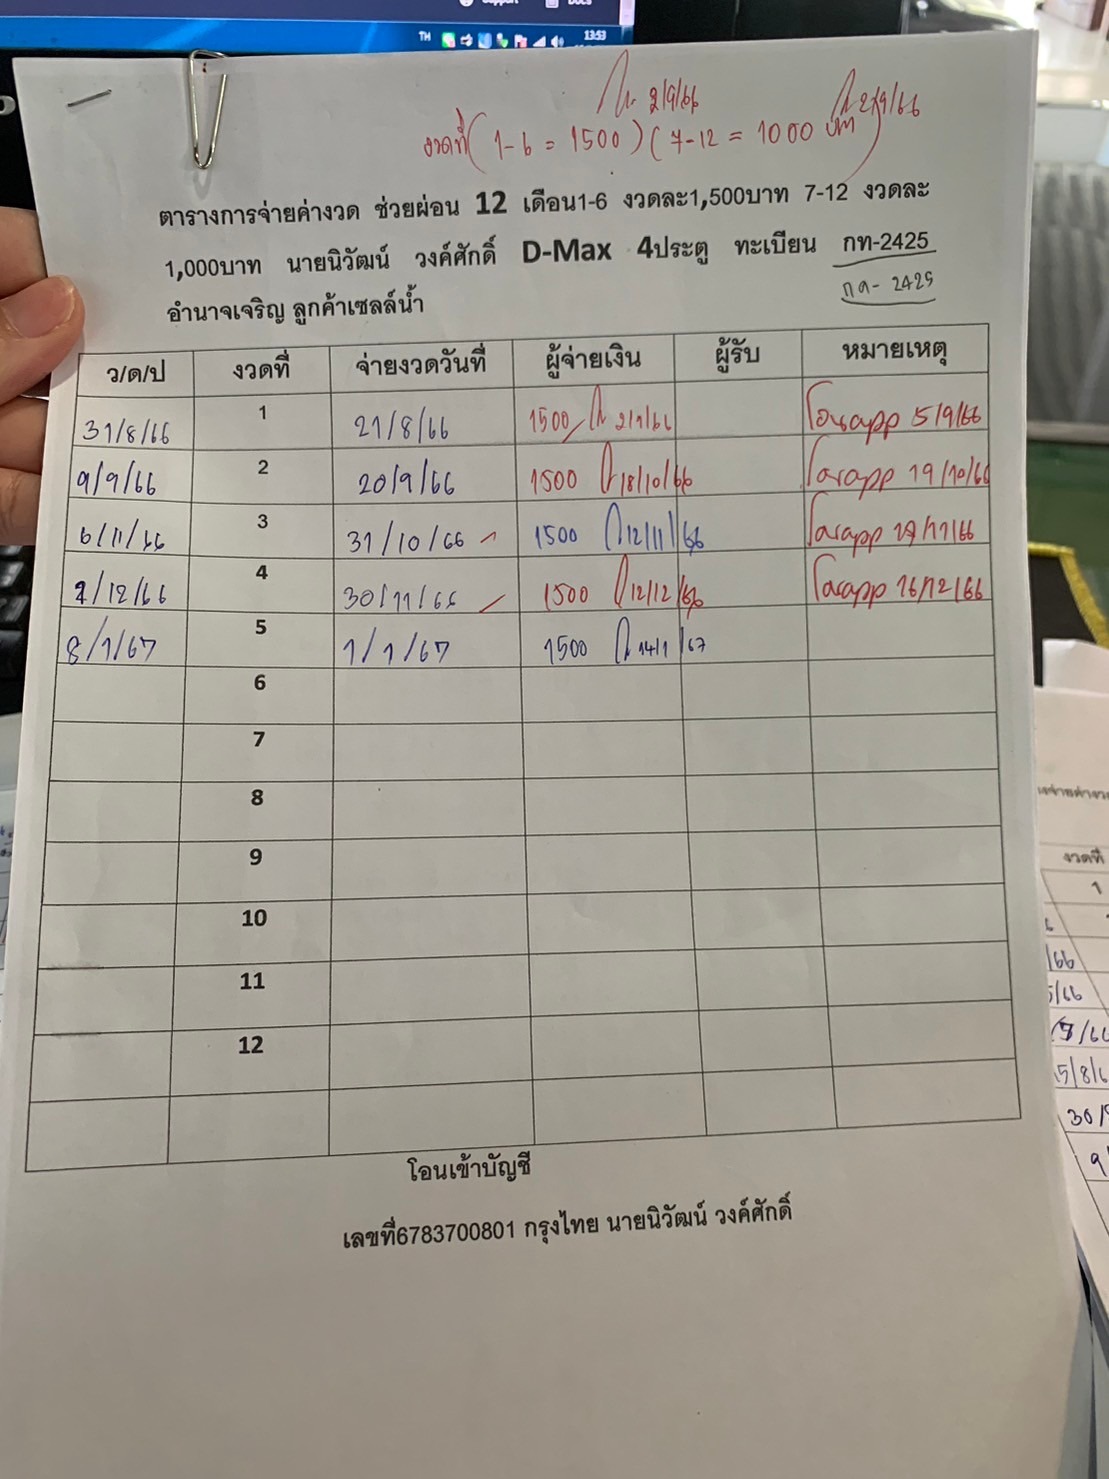 TH 13:53
2/9/66 2/9/66
งวดที่ (1-6 = 1500) (7-12 = 1000 บาท)
ตารางการจ่ายค่างวด ช่วยผ่อน 12 เดือน1-6 งวดละ1,500บาท 7-12 งวดละ
1,000บาท นายนิวัฒน์ วงค์ศักดิ์ D-Max 4ประตู ทะเบียน กท-2425
กท- 2425
อำนาจเจริญ ลูกค้าเซลล์น้ำ
ว/ด/ป งวดที่ จ่ายงวดวันที่ ผู้จ่ายเงิน ผู้รับ หมายเหตุ
31/8/66 1 21/8/66 1500 2/9/66 โอนapp 5/9/66
9/9/66 2 20/9/66 1500 18/10/66 โอนapp 19/10/66
6/11/66 3 31/10/66 1500 12/11/66 โอนapp /11/66
/12/66 4 30/11/66 1500 12/12/66 โอนapp 16/12/66
8/1/67 5 1/1/67 1500 14/1/67
6
7
8
9
10
11
12
โอนเข้าบัญชี
เลขที่6783700801 กรุงไทย นายนิวัฒน์ วงค์ศักดิ์
งวดที่
1
/66
5/66
5/8/6
30/